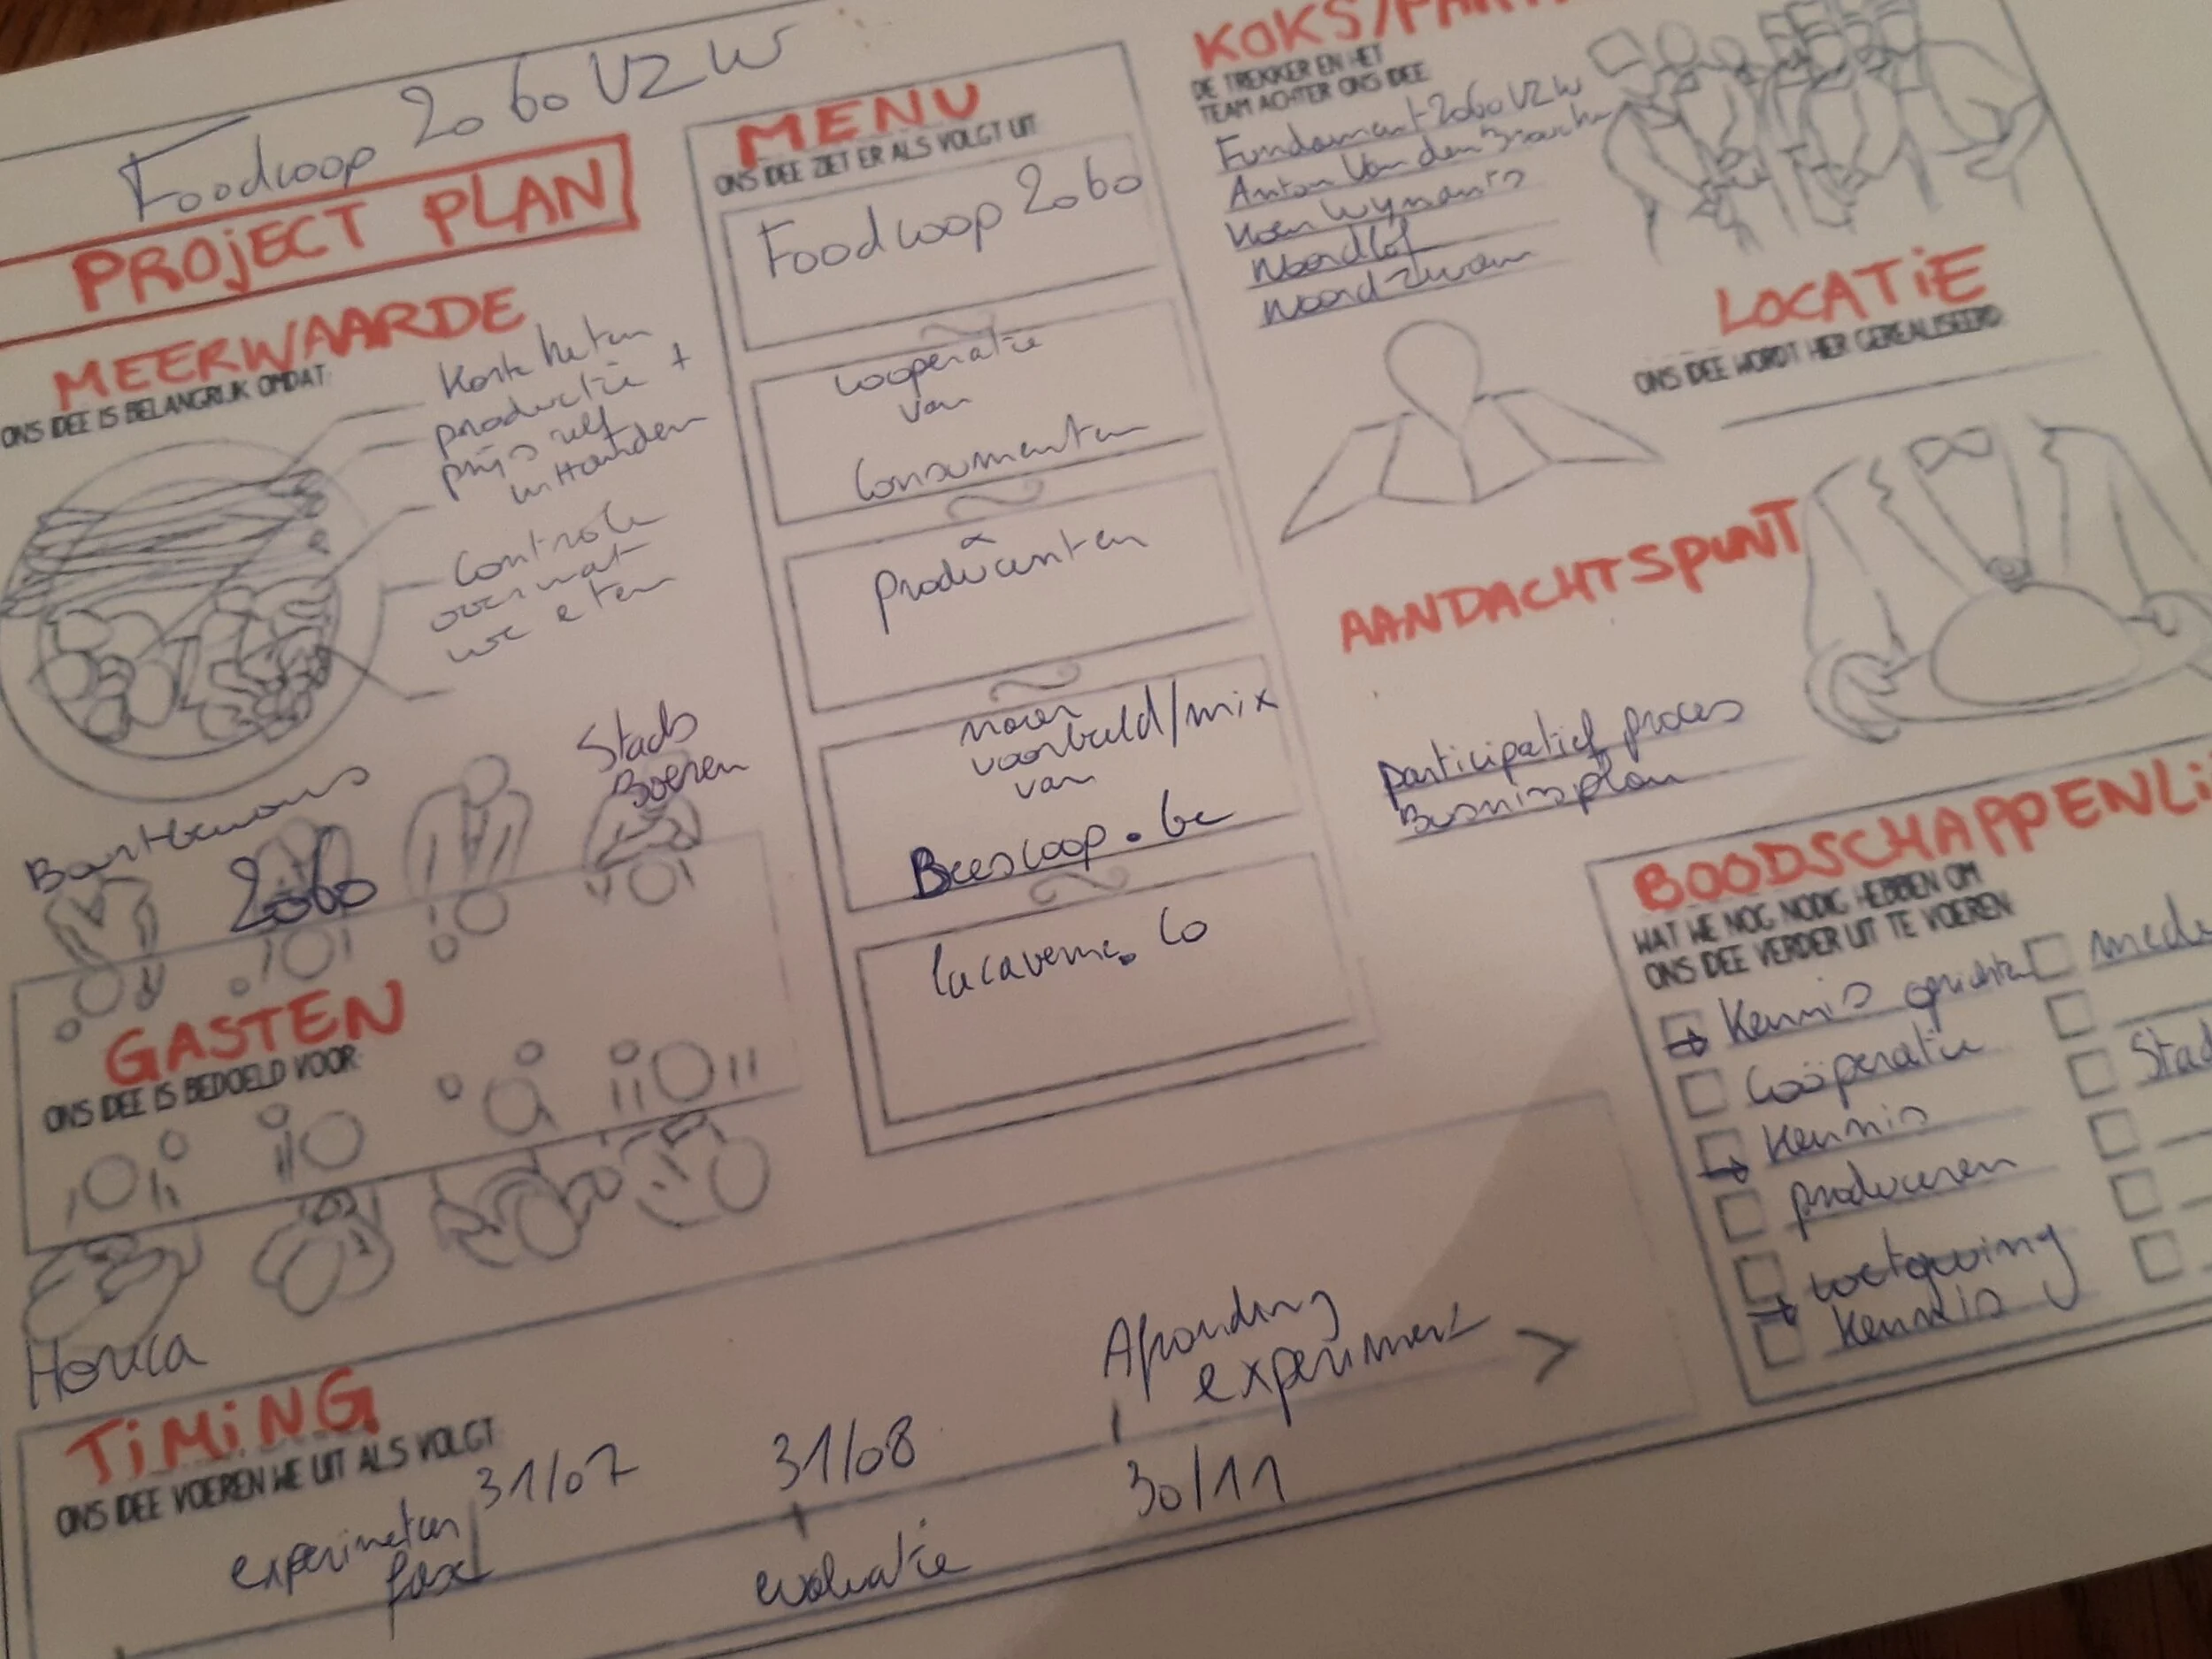 Foodcoop 2060 VZW
PROJECT PLAN
MEERWAARDE
ONS IDEE IS BELANGRIJK OMDAT:
Korte keten
productie +
prijs zelf
in Handen
Controle
over wat
we eten
Stads
Boeren
2060
GASTEN
ONS IDEE IS BEDOELD VOOR:
Horeca
MENU
ONS IDEE ZIET ER ALS VOLGT UIT
Foodcoop 2060
cooperatie
van
Consumenten
&
producenten
naar
voorbeeld/mix
van
Beescoop.be
lacaverne.co
KOKS/
DE TREKKER EN HET
TEAM ACHTER ONS IDEE
Fundament 2060 VZW
Anton Van den
Koen Wynants
Noordlof
Noordzwam
LOCATIE
ONS IDEE WORDT HIER GEREALISEERD:
AANDACHTSPUNT
participatief proces
Busnissplan
BOODSCHAPPENLI
WAT WE NOG NODIG HEBBEN OM
ONS IDEE VERDER UIT TE VOEREN:
Kennis oprichten
Coöperatie
Kennis
produceren
wetgeving
kennis
mede
Stad
TIMING
ONS IDEE VOEREN WE UIT ALS VOLGT:
31/07
31/08
Afronding
experiment
30/11
evaluatie